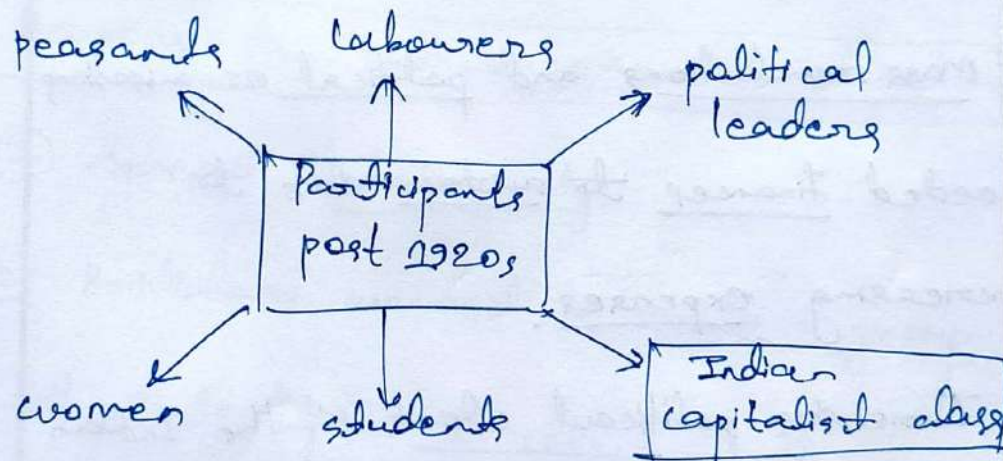 peasants
labourers
political
leaders
Participants
post 1920s
women
students
Indian
capitalist class